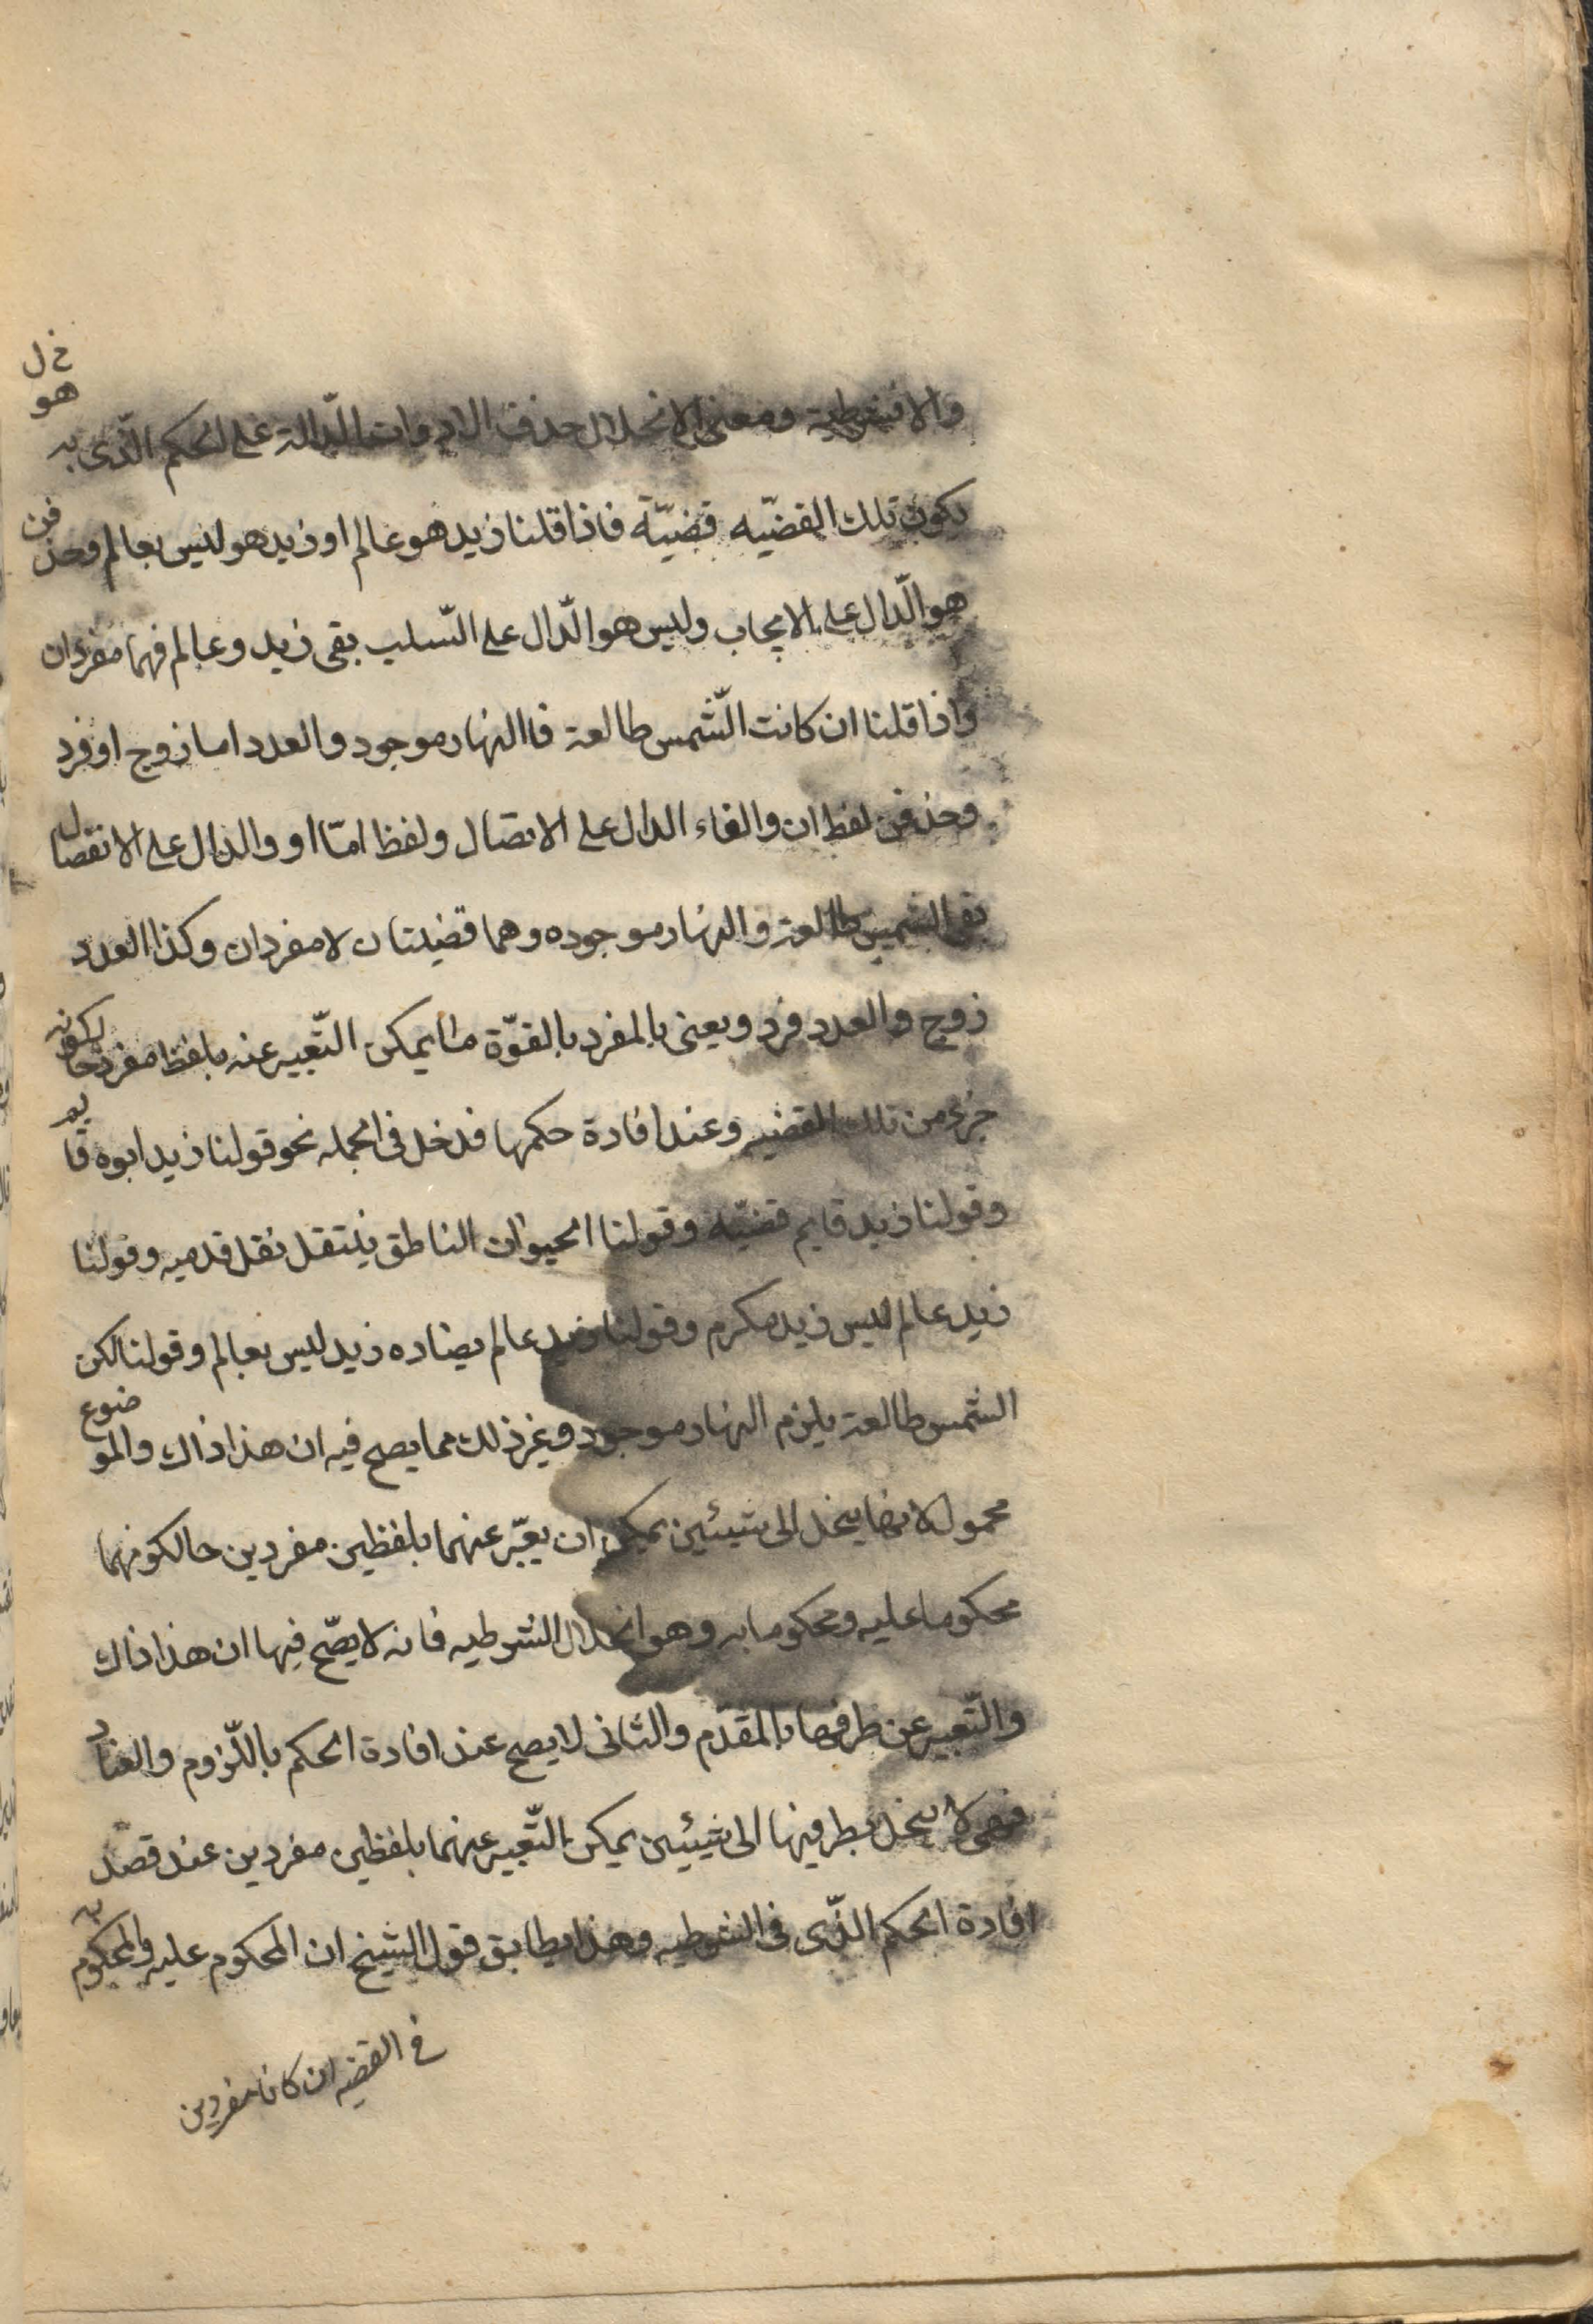 خ ل
هو
والا فشرطية ومعنى الانحلال حذف الادوات الدّالة على الحكم الّذى به
يكون تلك القضيّه قضيّة فاذا قلنا زيد هو عالم او زيد هو ليس بعالم وحذفن
هو الّدال على الايجاب وليس هو الّدال على السّلب بقى زيد وعالم فهما مفردان
واذا قلنا ان كانت الشّمس طالعة فاالنهار موجود والعدد اما زوج او فرد
وحذفن لفظ ان والفاء الدال على الاتصال ولفظ امّا او والدال على الانفصال
بقى الشمس طالعة والنهار موجوده وهما قضيتان لا مفردان وكذا العدد
زوج والعدد فرد ويعنى بالمفرد بالقوّة ما يمكن التّعبير عنه بلفظ مفرد حا لكونه
جزء من تلك القضيه وعند افادة حكمها فدخل فى الجمله نحو قولنا زيد ابوه قايم
وقولنا زيد قايم قضيّه وقولنا الحيوان الناطق ينتقل بنقل قدميه وقولنا
زيد عالم ليس زيد مكرم وقولنا زيد عالم يضاده زيد ليس بعالم وقولنا لكن
الشمس طالعة يلزم النهار موجود وغير ذلك مما يصح فيه ان هذا ذاك والموضوع
محمول لانها ينحل الى شيئين يمكن ان يعبّر عنهما بلفظين مفردين حالكونهما
محكوما عليه ومحكوما به وهو انحلال الشرطيه فانه لا يصّح فيها ان هذا ذاك
والتّعبير عن طرفيها بالمقدّم والثانى لا يصح عند افادة الحكم بالّلزوم والعناد
فهى لا ينحل بطرفيها الى شيئين يمكن التّعبير عنهما بلفظين مفردين عند قصد
افادة الحكم الذّى فى الشرطيه وهذا يطابق قول الشيخ ان المحكوم عليه والمحكوم به
فى القضيه ان كانا مفردين